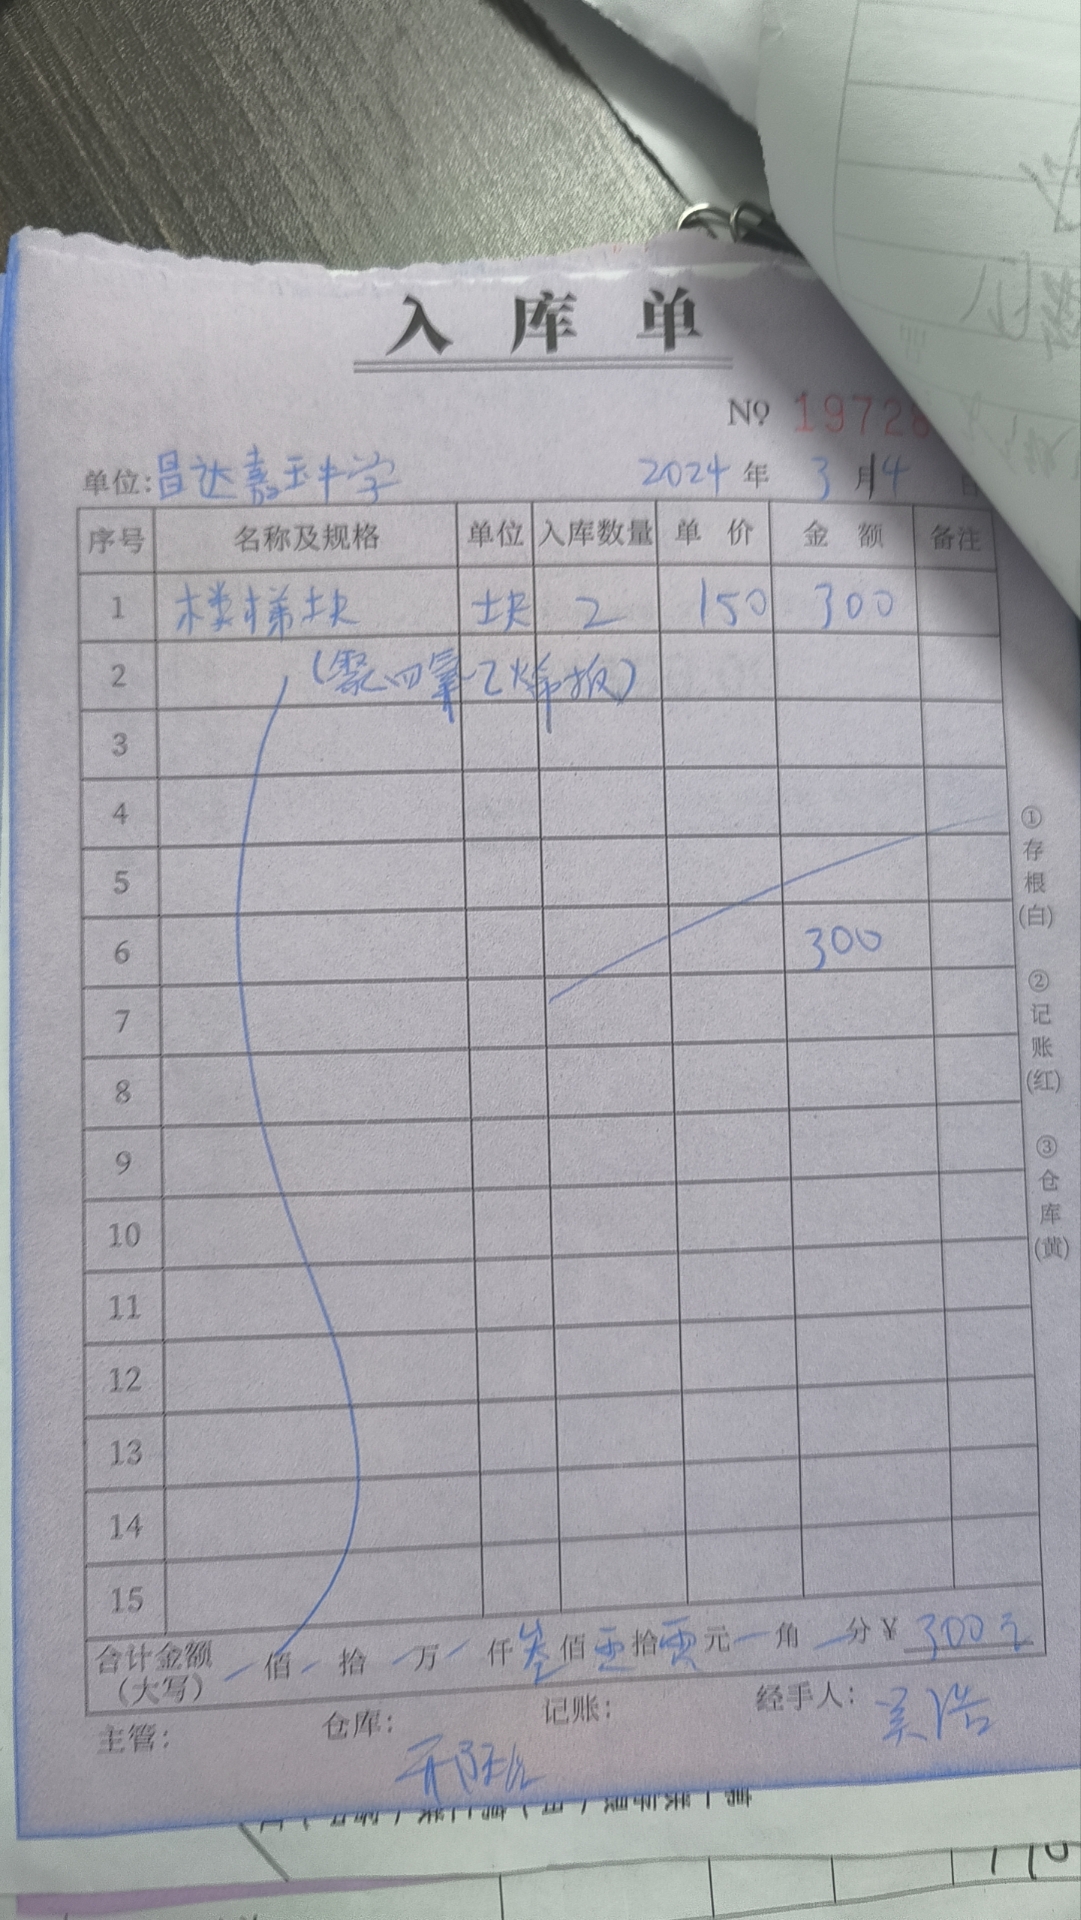 入库单
№ 19728
单位:昌达嘉玉丰字 2024 年 3 月 4
序号 名称及规格 单位 入库数量 单价 金额 备注
1 楼梯块 块 2 150 300
2 (聚四氟乙烯板)
3
4
5
6 300
7
8
9
10
11
12
13
14
15
合计金额(大写) 佰 拾 万 仟 叁 佰 零 拾 零 元 角 分 ¥ 300元
主管: 仓库: 记账: 经手人: 吴浩
①存根(白) ②记账(红) ③仓库(黄)